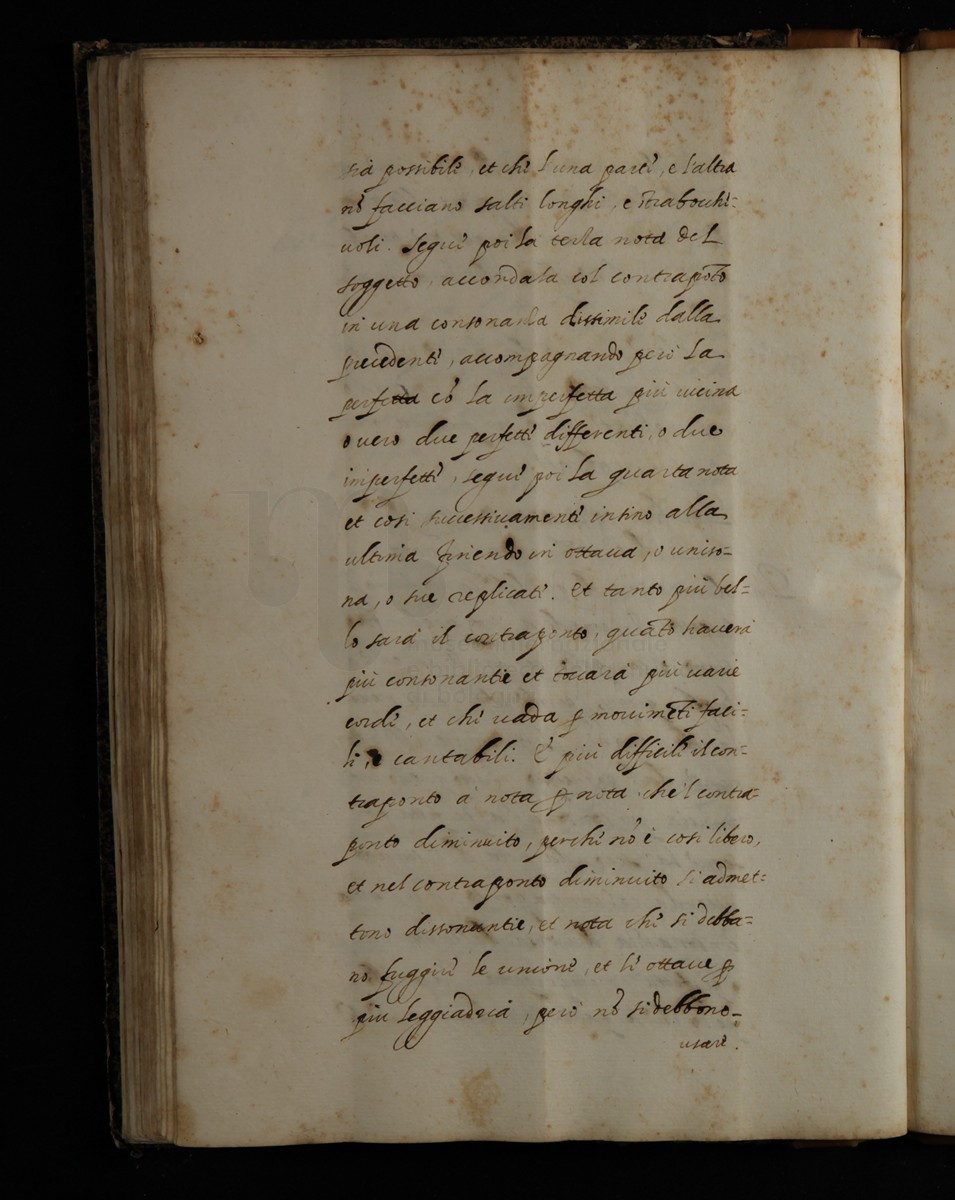 sia possibile, et che l'una parte, e l'altra
nõ facciano salti longhi, e strabochi=
uoli. Segue poi la terza nota del
soggetto, accordala col contrapõto
in una consonanza dissimile dalla
precedente, accompagnando però la
perfetta cõ la imperfetta più uicina
ouero due perfette differenti, o due
imperfette, segue poi la quarta nota
et così successiuamente insino alla
ultima finendo in ottaua, o uniso=
na, o sue replicate. Et tanto più bel=
lo sarà il contraponto, quãto hauerà
più consonantie et toccarà più uarie
corde, et che uada p mouimẽti faci=
li, e cantabili. È più difficile il con=
traponto a nota p nota che'l contra=
ponto diminuito, perche nõ è così libero,
et nel contraponto diminuito si admet=
tono dissonantie, et nota che si debba=
no fuggire le unione, et le ottaue p
più leggiadria, però nõ si debbono
usare.